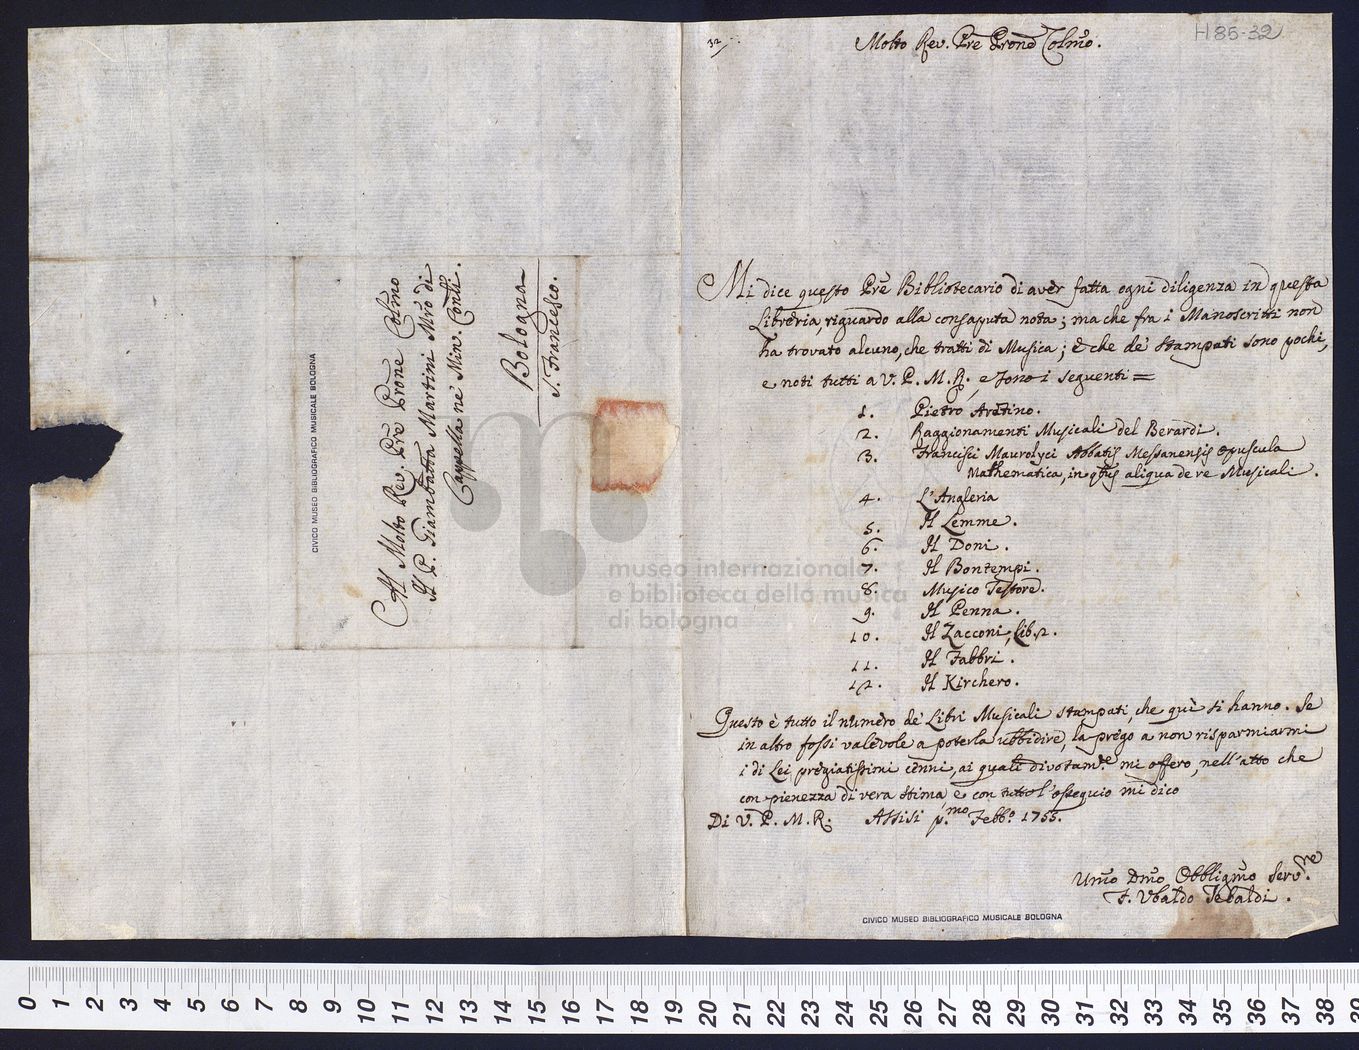 32
H85-32
Molto Rev. Pre Prone Colmo.
Mi dice questo Pre Bibliotecario di aver fatta ogni diligenza in questa
Libreria, riguardo alla consaputa nota; ma che fra i Manoscritti non
ha trovato alcuno, che tratti di Musica; e che de' stampati sono pochi,
e noti tutti a V. P. M. R., e sono i seguenti =
1. Pietro Aretino.
2. Raggionamenti Musicali del Berardi.
3. Francisci Maurolyci Abbatis Messanensis opuscula
Mathematica, in qbus aliqua de re Musicali.
4. L'Angleria
5. Il Lemme.
6. Il Doni.
7. Il Bontempi.
8. Musico Testore.
9. Il Penna.
10. Il Zacconi, lib. 2.
11. Il Fabbri.
12. Il Kirchero.
Questo è tutto il numero de' Libri Musicali stampati, che quì si hanno. Se
in altro fossi valevole a poterla ubbidire, la prego a non risparmiarmi
i di Lei pregiatissimi cenni, ai quali divotamte mi offero, nell'atto che
con pienezza di vera stima, e con tutto l'ossequio mi dico
Di V. P. M. R. Assisi pmo Febbo 1755.
Umo Dmo Obbligmo Servre
F. Ubaldo Tebaldi.
CIVICO MUSEO BIBLIOGRAFICO MUSICALE BOLOGNA
Al Molto Rev. Pre Prone Colmo
Il P. Giambatta Martini Mro di
Cappella ne' Min. Conli.
Bologna
S. Francesco.
CIVICO MUSEO BIBLIOGRAFICO MUSICALE BOLOGNA
museo internazionale
e biblioteca della musica
di bologna
0 1 2 3 4 5 6 7 8 9 10 11 12 13 14 15 16 17 18 19 20 21 22 23 24 25 26 27 28 29 30 31 32 33 34 35 36 37 38 39